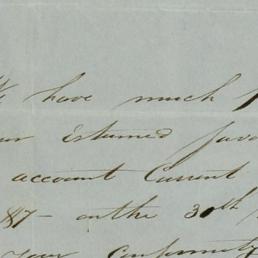 We have much
Esteemed favo
account Current
87 - on the 30th
your conformity